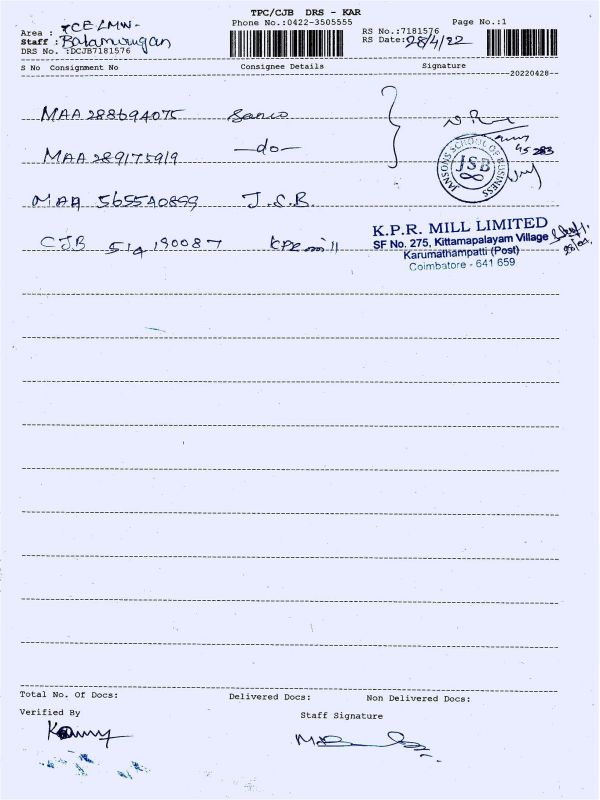 TPC/CJB DRS - KAR
Phone No.:0422-3505555
Page No.:1
Area : TCE/LMW-
Staff : Balamurugan
DRS No. :DCJB7181576
RS No.:7181576
RS Date:28/4/22
S No Consignment No Consignee Details Signature
20220428
MAA 288694075 Sanco
MAA 289175919 -do-
JANSONS SCHOOL OF BUSINESS
JSB
MAA 565540899 J.S.B.
CJB 514190087 KPR mill
K.P.R. MILL LIMITED
SF No. 275, Kittamapalayam Village
Karumathampatti (Post)
Coimbatore - 641 659
Total No. Of Docs: Delivered Docs: Non Delivered Docs:
Verified By
Staff Signature